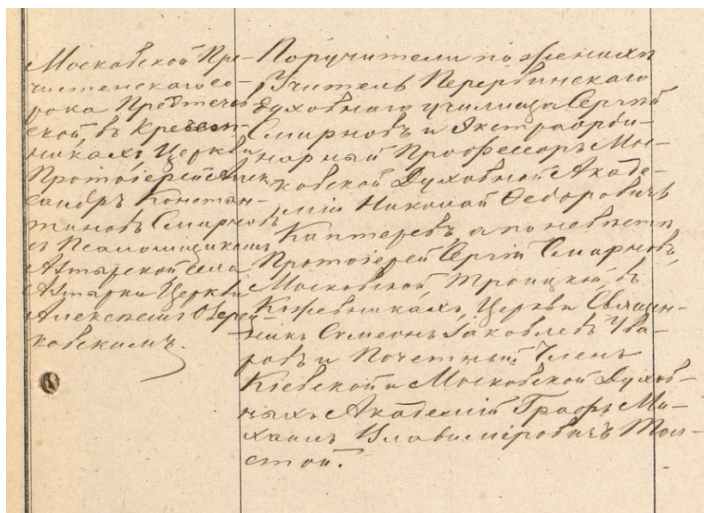 Московской Пре-
чистенскаго со-
рока Предтечев-
ской, въ Кречет-
никахъ Церкви
Протоіерей Алек-
сандръ Констан-
тиновъ Смирновъ
съ Псаломщикомъ
Ахтырской села
Ахтырки Церкви
Алексеемъ Озерец-
ковскимъ.
Поручители по женихѣ
Учитель Перервинскаго
духовнаго училища Сергѣй
Смирновъ и Экстраорди-
нарный Профессоръ Мос-
ковской Духовной Акаде-
міи Николай Ѳедоровичъ
Каптеревъ, а по невѣстѣ
Протоіерей Сергій Смирновъ,
Московской Троицкой, въ
Кожевникахъ, Церкви Священ-
никъ Симеонъ Іаковлевъ Ува-
ровъ и Почетный Членъ
Кіевской и Московской Духов-
ныхъ Академій Графъ Ми-
хаилъ Владиміровичъ Тол-
стой.